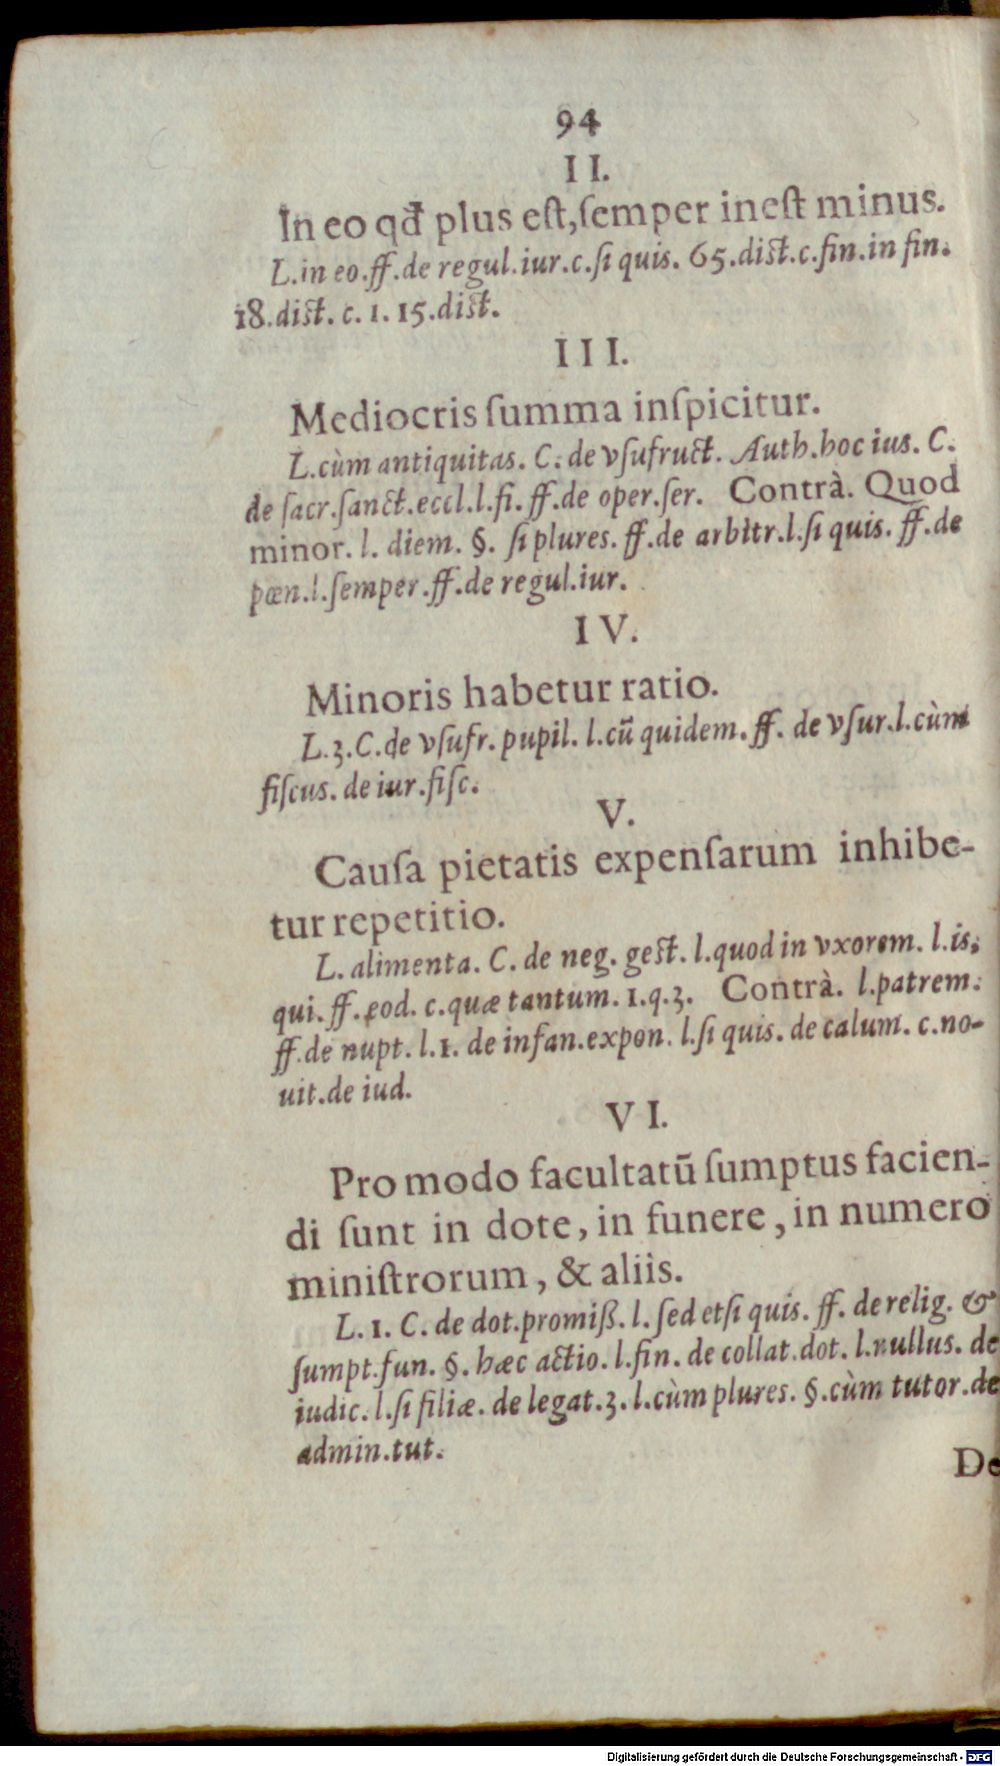 94
II.
In eo qđ plus eſt, ſemper ineſt minus.
L. in eo. ff. de regul. iur. c. ſi quis. 65. diſt. c. fin. in fin.
18. diſt. c. 1. 15. diſt.
III.
Mediocris ſumma inſpicitur.
L. cùm antiquitas. C. de vſufruct. Auth. hoc ius. C.
de ſacr. ſanct. eccl. l. fi. ff. de oper. ſer. Contrà. Quod
minor. l. diem. §. ſi plures. ff. de arbitr. l. ſi quis. ff. de
pœn. l. ſemper. ff. de regul. iur.
IV.
Minoris habetur ratio.
L. 3. C. de vſufr. pupil. l. cū quidem. ff. de vſur. l. cùm
fiſcus. de iur. fiſc.
V.
Cauſa pietatis expenſarum inhibe-
tur repetitio.
L. alimenta. C. de neg. geſt. l. quod in vxorem. l. is,
qui. ff. eod. c. quæ tantum. 1. q. 3. Contrà. l. patrem.
ff. de nupt. l. 1. de infan. expon. l. ſi quis. de calum. c. no-
uit. de iud.
VI.
Pro modo facultatū ſumptus facien-
di ſunt in dote, in funere, in numero
miniſtrorum, & aliis.
L. 1. C. de dot. promiß. l. ſed etſi quis. ff. de relig. &
ſumpt. fun. §. hæc actio. l. fin. de collat. dot. l. nullus. de
iudic. l. ſi filiæ. de legat. 3. l. cùm plures. §. cùm tutor. de
admin. tut.
De
Digitalisierung gefördert durch die Deutsche Forschungsgemeinschaft - DFG